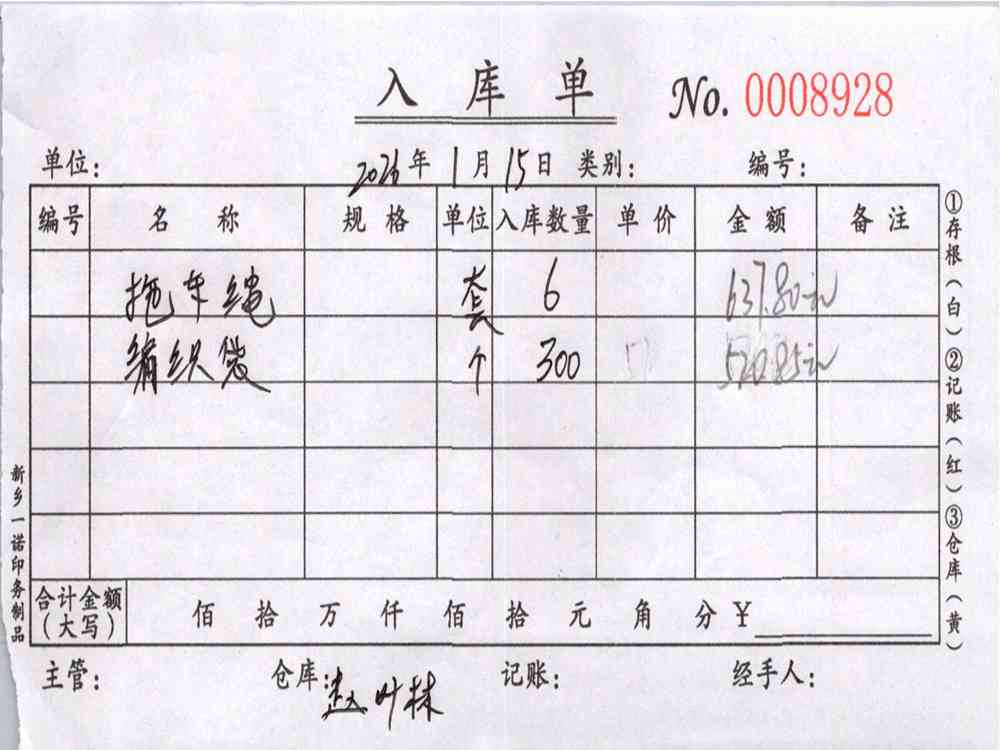 入库单 No. 0008928
单位： 2026年1月15日 类别： 编号：
编号 名称 规格 单位 入库数量 单价 金额 备注
拖车绳 套 6 637.80元
编织袋 个 300 520.85元
合计金额（大写） 佰 拾 万 仟 佰 拾 元 角 分 ¥
主管： 仓库：赵叶林 记账： 经手人：
①存根（白）②记账（红）③仓库（黄）
新乡一诺印务制品